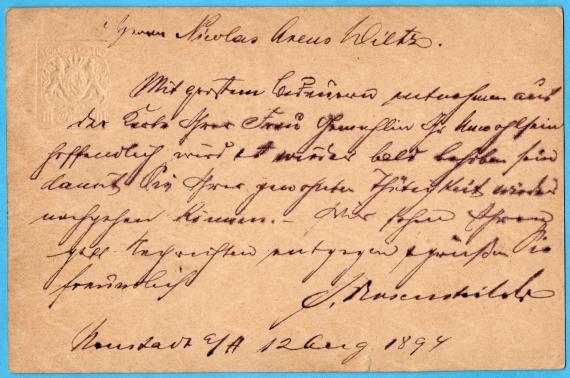 Herrn Nicolas Arens Wiltz.
Mit großem Bedauern entnehmen aus
der Karte Ihrer Frau Gemahlin Ihr Unwohlsein
hoffendlich wird es wieder bald behoben sein
damit Sie Ihrer gewohnten Thätigkeit wieder
nachgehen können. – Wir sehen Ihren
Nachrichten entgegen & grüßen Sie
freundlich
J. Rosenstiel
Neustadt a/H 12 Aug 1894